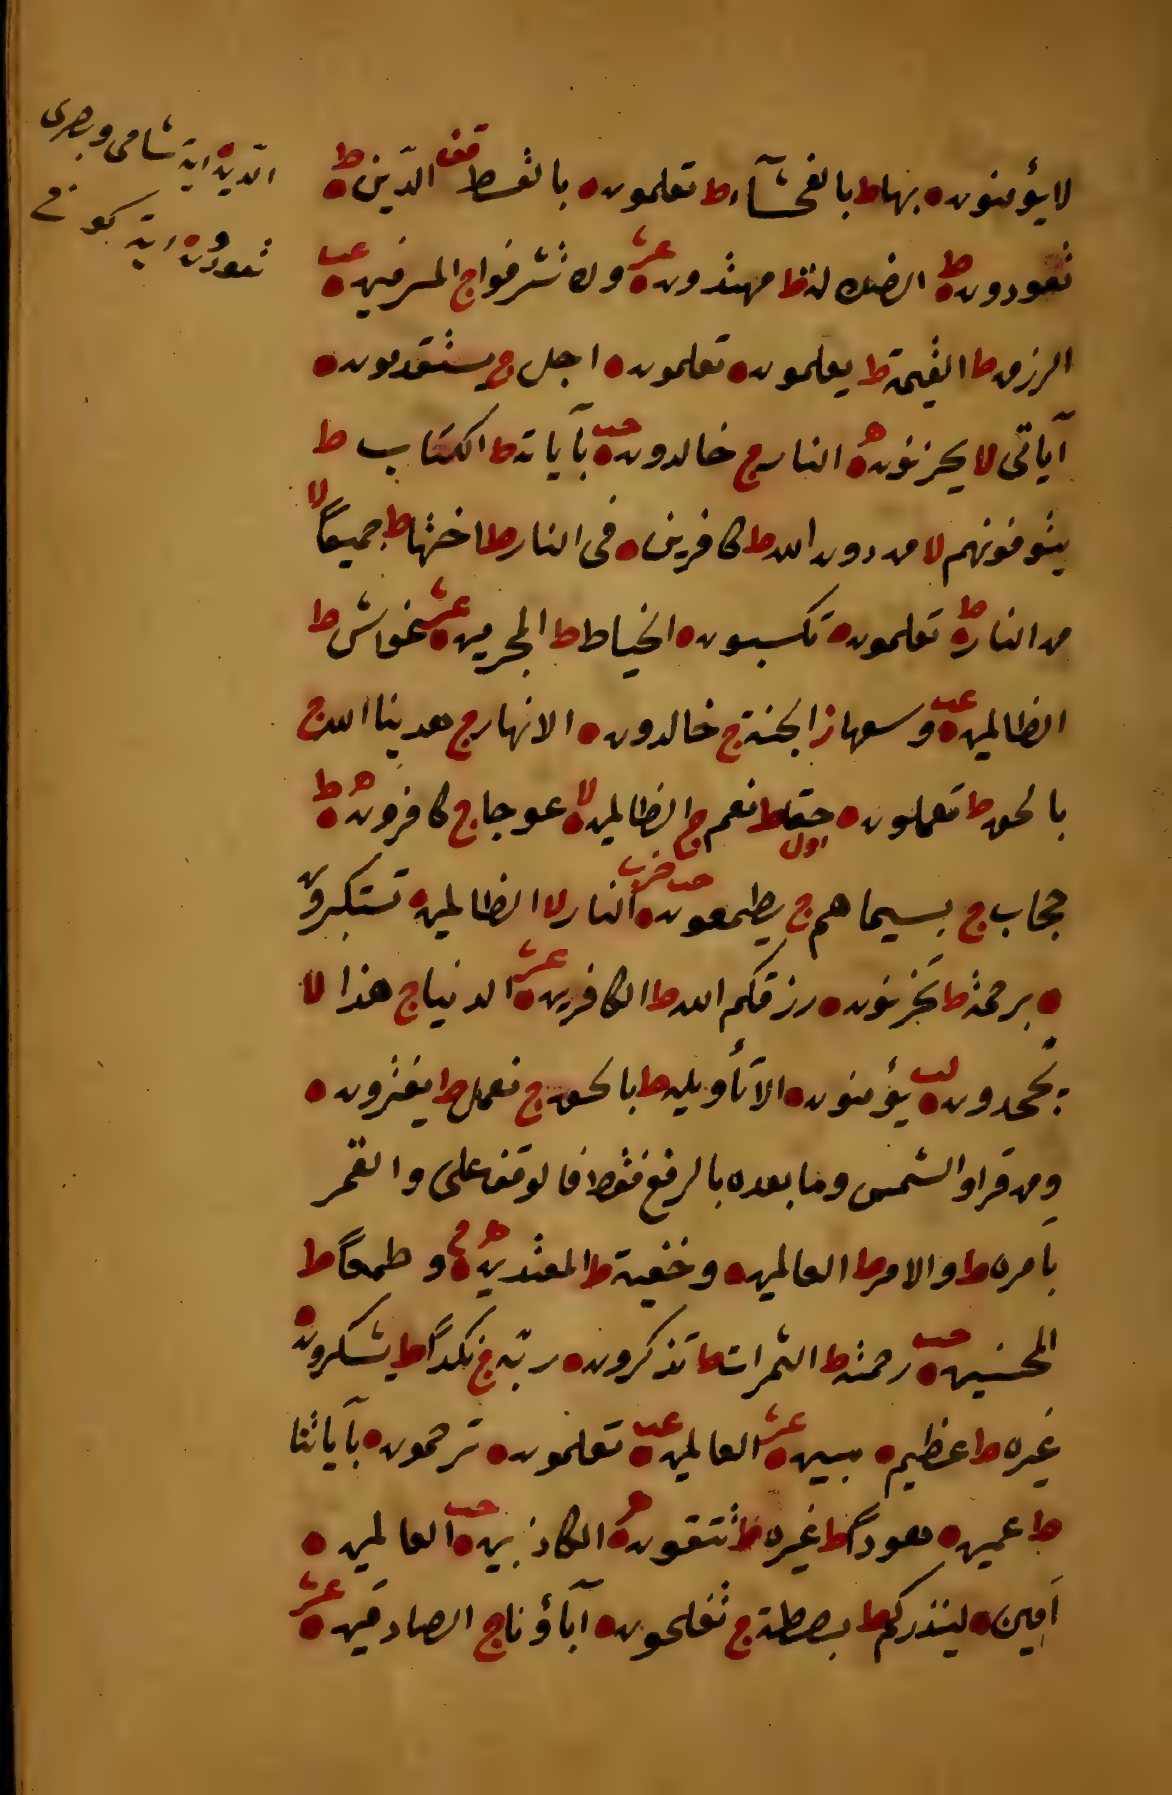 لا يؤمنون ه بها ط بالفحشآء ط تعلمون ه بالقسط قف الدّين ه ط
تعودون ه ط الضلالة ط مهتدون ه عشر ولا تسرفوا ج المسرفين ه عب
الرزق ط القيمة ط يعلمون ه تعلمون ه اجل ج يستقدمون ه
آياتى لا يحزنون ه ه النار ج خالدون ه حب بآياته ط الكتاب ط
يتوفونهم لا من دون الله ط كافرين ه فى النار ط اختها ط جميعاً لا
من النار ه ط تعلمون ه تكسبون ه الخياط ط المجرمين ه عشر غواش ط
الظالمين ه عب وسعها ز الجنة ج خالدون ه الانهار ج هدينا الله ج
بالحق ط تعملون ه حقا ط نعم ج الظالمين ه لا عوجا ج كافرون ه ه ط
اول
حجاب ج بسيماهم ج يطمعون ه حب حزب النار لا الظالمين ه تستكبرون
ه برحمة ط تحزنون ه رزقكم الله ط الكافرين ه عشر الدنيا ج هذا لا
يجحدون ه لب يؤمنون ه الا تأويله ط بالحق ج نعمل ط يفترون ه
ومن قرا والشمس وما بعده بالرفع فقط فالوقف على والقمر
بامره ط والامر ط العالمين ه وخفية ط المعتدين ه ه ج وطمعاً ط
المحسنين ه حب رحمته ط الثمرات ط تذكرون ه ربّه ج نكداً ط يشكرون ه
غيره ط عظيم ه مبين ه عشر العالمين ه عب تعلمون ه ترحمون ه بآياتنا
ط عمين ه هوداً ط غيره ط تتقون ه ه الكاذبين ه حب العالمين ه
امين ه لينذركم ط بصطة ج تفلحون ه آبآؤنا ج الصادقين ه عشر
الدين ه اية شامى وبصرى
تعودون ه اية كوفى